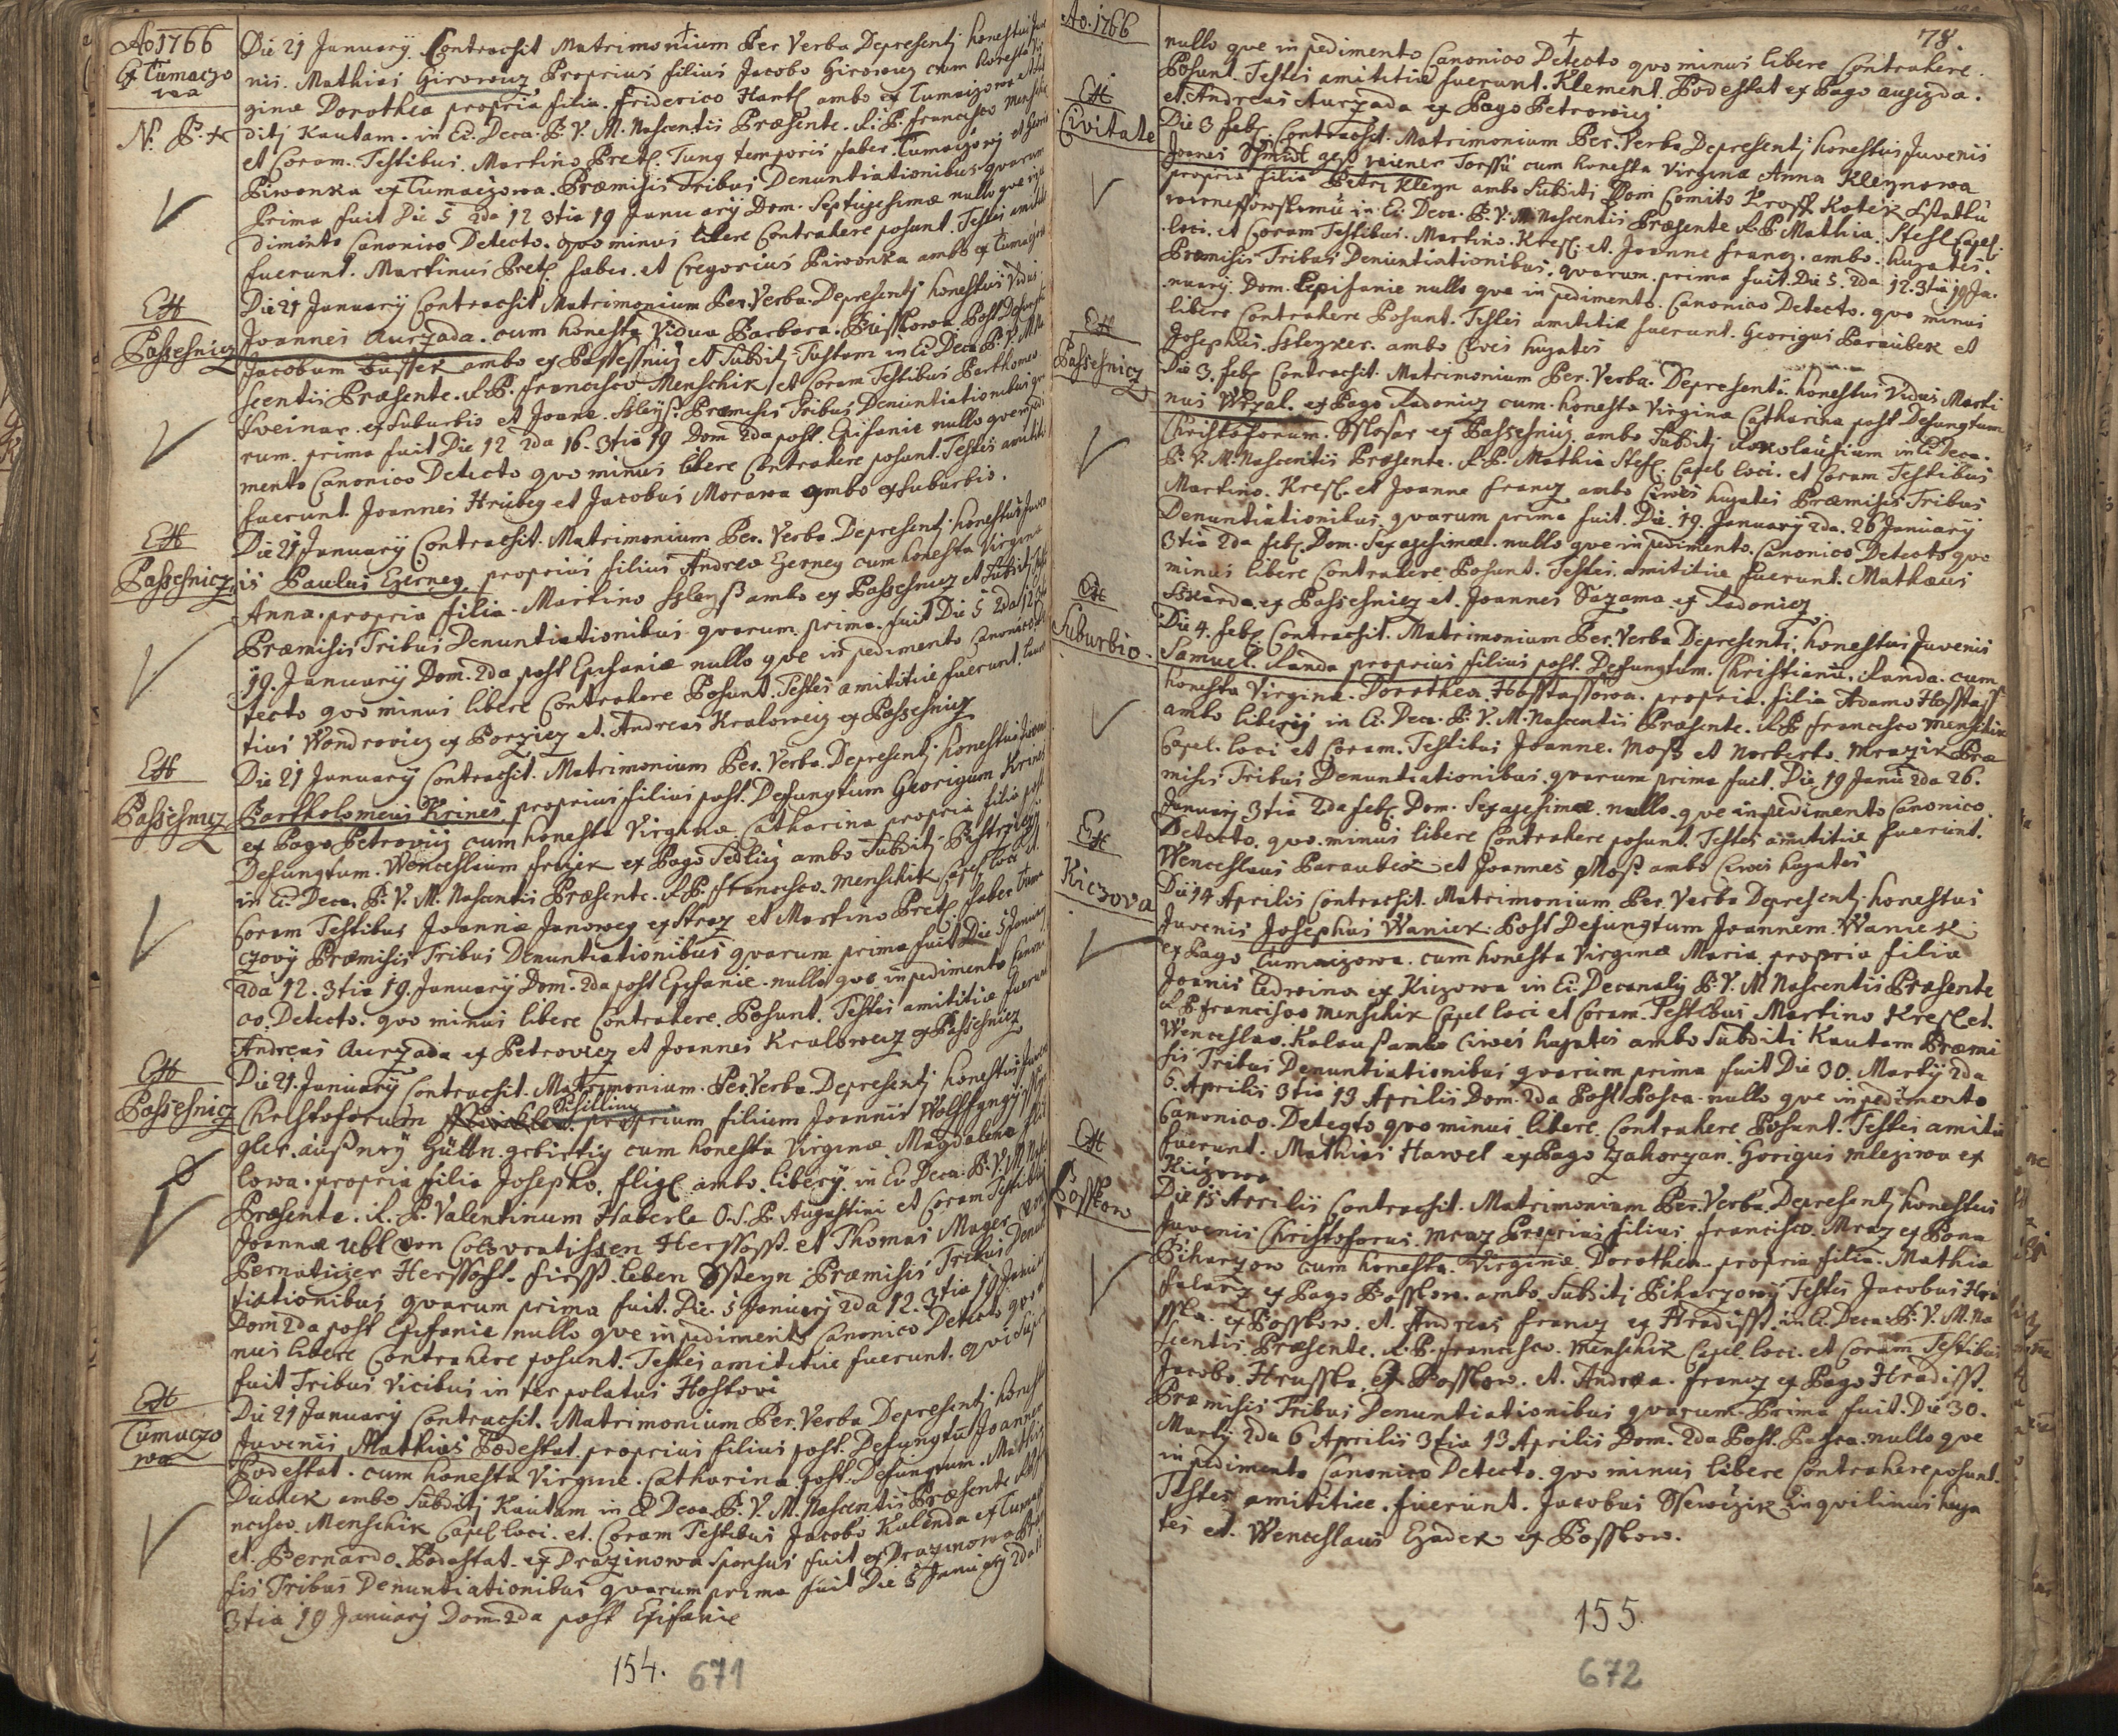 Ao 1766
Ex Tumaczo
wa
N. P. +
Die 21 January. Contracsit Matrimonium Per Verba Depresentj honestus Juve
nis. Mathias Girowicz Proprius filius Jacobo Girowicz cum honesta Vir
ginæ Dorothea propria filia. friderico Hantl ambo ex Tumaczowa et Sub
ditj Kautam. in Ec. Deca. B. V. M. Nascentis Præsente. R. P. francisco Menschik
et Coram. Testibus. Martino Pretl. Tung temporis faber. Tumaczovj et Georio
Piwonka ex Tumaczowa. Præmisis Tribus Denuntiationibus quarum
Prima fuit Die 5 2da 12 3tia 19 January Dom. Septugesimæ nullo que inpe
dimento Canonico Detecto. quo minus libere Contrahere posunt. Testes amititiæ
fuerunt. Martinus Pretl faber. et Gregorius Piwonka ambo ex Tumaczowa
Ex
Passesnicz
Die 21 January Contracsit Matrimonium Per. Verba. Depresentj honestus Vidus
Joannes Aurzada. cum honesta Vidua Barbara. Busskowa Post Defungtum
Jacobum Bussek ambo ex Passessnicz et Subditj Tustam in Ec Deca B. V. M. Na
scentis Præsente. R. P. francisco Menschik et Coram Testibus Barthomeo
Sveinar. ex Suburbio et Joane. Ssleys. Præmisis Tribus Denuntiationibus qva
rum. prima fuit Die 12 2da 16. 3tia 19 Dom 2da post. Epifanie nullo que inpedi
mento Canonico Detecto quo minus libere Contrahere posunt. Testes amititiæ
fuerunt. Joannes Hrubeg et Jacobus Morawa ambo ex Suburbio.
Ex
Passesnicz
Die 21 January Contracsit. Matrimonium Per. Verba. Depresentj. honestus Juve
is Paulus Czerneg. proprius filius Andrea Czerneg cum honesta Virginæ
Anna. propria filia. Martino Ssleyß ambo ex Passesnicz et Subditj
Præmisis Tribus Denuntiationibus quarum. prima. fuit Die 5 2da 12 3tia
19. January Dom. 2da post Epifaniæ nullo que inpedimento Canonico De
tecto quo minus libere Contrahere Posunt. Testes amititiæ fuerunt. Lauren
tius Wondrovicz ex Porzicz et. Andreas Kralowecz ex Passesnicz
Ex
Passesnicz
Die 21 January Contracsit. Matrimonium Per. Verba. Depresentj. honestus Juvenis
Bartholomeus Krines. proprius filius post. Defungtum Georigum Krines
ex Pago Petrovicz cum honesta Virginæ. Catharina propria filia post
Defungtum. Wenceslaum frczek ex Pago Sedlicz ambo Subditj Bystrzicz
in Ec. Deca. B. V. M. Nascentis Præsente. R. P. francisco. Menschik Capel. Loci et
Coram Testibus Joannæ Janoweg ex Straz et Martino Pretl faber Tuma
czovÿ Præmisis Tribus Denuntiationibus quarum prima fuit Die 5 January
2da 12. 3tia 19. January Dom. 2da post Epifanie. nullo que inpedimento Canoni
co. Detecto. quo minus libere Contrahere. Posunt. Testes amititiæ fuerunt
Andreas Aurzada ex Petrovicz et Joannes Kralowecz ex Passesnicz
Ex
Passesnicz
Die 21. January Contracsit. Matrimonium. Per. Verba. Depresentj honestus Juvenis
Schilling
Christoforum proprium filium Joannis Wolffgng
gler. außnrÿ Güttn. grbirtig cum honesta Virginæ. Magdalena
lowa. propria filia Josepho. fligl ambo. liberÿ. in Ec Deca. B. V. M. Nasc
Præsente. R. P. Valentinum Haberle O. S. P. Augustini et Coram Testibus
Joannæ Ubl von Colovratissen Herssosst. et Thomas Mayer von
Pernaticzer Herssosst. fürst. leben Ssteyn. Præmisis Tribus Denun
tiationibus quarum prima fuit. Die. 5 January 2da 12. 3tia 19 January
Dom 2da post Epifanie nullo que inpedimento Canonico Detecto quo mi
nus libere Contrahere posunt. Testes amititiæ fuerunt. qui supra
fuit Tribus. Vicibus in ter polatus Hostovi
Ex
Tumaczo
wa
Die 21 January Contracsit. Matrimonium Per. Verba Depresentj honestus
Juvenis Mathias Podestat. proprius filius post. Defungtu Joannem
Podestat. cum honesta Virgine. Catharina. post. Defungtum. Mathia
Duchek ambo Subditj Kautam in Ec Deca. B. V. M. Nascentis Præsente R. P. fra
ncisco. Menschik Capel loci. et. Coram Testibus Jacobo Kalenda ex Tumacz
et. Bernardo. Podestat. ex Drazinowa Sponsus fuit ex Drazinowa Præmi
sis Tribus Denuntiationibus quarum prima fuit Die 5 January 2da 12
3tia 19 January Dom. 2da post Epifanie
154. 671
Ao. 1766
78.
nullo que inpedimento Canonico Detecto quo minus libere Contrahere.
Posunt. Testes amititiæ fuerunt. Klement. Podestat ex Pago augezda.
et. Andreas Aurzada ex Pago Petrowicz
Ex
Civitate
Die 3 feb. Contracsit. Matrimonium Per. Verba Depresentj honestus Juvenis
Joanes Schmidt cum honesta Virginæ Anna Kleynowa
propria filia Petri Kleyn ambo Subditj Dom Comito
in Ec. Deca. B. V. M. Nascentis Præsente R. P. Mathia. Stefl Capel.
loci. et Coram Testibus. Martino. Kresl. et. Joanne francz. ambo. hugates.
Præmisis Tribus Denuntiationibus. quarum. prima fuit. Die 5. 2da 12. 3tia 19 Ja.
nuary. Dom. Epifanie nullo que inpedimento. Canonico Detecto. quo minus
libere Contrahere Posunt. Testes amititiæ fuerunt. Georigus Paraubek et
Josephus. Ssleyxer. ambo Cives hugates
Ex
Passesnicz
Die 3. feb. Contracsit. Matrimonium Per. Verba. Depresenti. honestus Vidus Marti
nus Wrzal. ex Pago Radonicz cum. honesta Virginæ Catharina post Defungtum
Christoforum. Sslosar ex Passesnicz. ambo Subditj in Ec Deca.
B. V. M. Nascentis Præsente. R. P. Mathia Stefl. Capel loci. et Coram Testibus
Martino. Kresl. et Joanne francz ambo Cives hugates Præmisis Tribus
Denuntiationibus quarum prima fuit. Die. 19. January 2da. 26 January
3tia 2da feb. Dom. Sexagesimæ. nullo que inpedimento. Canonico Detecto quo
minus libere Contrahere Posunt. Testes. amititiæ fuerunt. Mathæus
Sskarda. ex Passesnicz et. Joannes Sazama. ex Radonicz
Ex
Suburbio.
Die 4. feb. Contracsit. Matrimonium Per. Verba Depresenti. honestus Juvenis
Samuel. Randa proprius filius post. Defungtum. Christianu. Randa. cum
honesta Virginæ. Dorothea Hosstassowa. propria. filia Adamo Hosstass
ambo liberÿ in Ec. Deca. B. V. M. Nascentis Præsente. R. P. francisco Menschik
Capel. loci et Coram. Testibus Joanne. Moß et Norberto. Mrazik Præ
misis Tribus Denuntiationibus. quarum prima fuit. Die 19 Janu 2da 26.
January 3tia 2da feb. Dom. Sexagesimæ. nullo. que inpedimento Canonico.
Detecto. quo. minus libere Contrahere posunt. Testes amititiæ fuerunt.
Wenceslaus Paraubek et Joannes Moß ambo Cives hugates
Ex
Kiczova
Die 14 Aprilis Contracsit. Matrimonium Per. Verba Depresentj. honestus
Juvenis Josephus Waniek. Post Defungtum Joannem. Waniek
ex Pago Tumaczowa. cum honesta Virginæ Maria. propria filia
Joanis Ledwina ex Kiczowa in Ec. Decanalj B. V. M Nascentis Præsente
R. P. francisco Menschik Capel loci et Coram. Testibus Martino Kresl et.
Wenceslao. Kalauß ambo Cives hugates ambo Subditi Kautam Præmi
sis Tribus Denuntiationibus quarum prima fuit Die 30. Marty 2da
6. Aprilis 3tia 13 Aprilis Dom. 2da Post Pasca. nullo que inpedimento
Canonico. Detegto quo minus. libere. Contrahere Posunt. Testes amiti
fuerunt. Mathias Hawel ex Pago Zahorzan. Gorigus Mleziwa ex
Kiczowa
Ex
Bosskow
Die 15 Aprilis Contracsit. Matrimonium Per. Verba Depresentj honestus
Juvenis Christoforus. Mraz Proprius filius. francisco. Mraz ex Pona
Biharzow cum honesta. Virginæ. Dorothea. propria filia. Mathia
falarz ex Pago Bosskow. ambo. Subditj Biharzowÿ Testes Jacobus Hru
sska. ex Bosskow. et. Andreas francz ex Hradisst. in Ec. Deca. B. V. M. Na
scentis. Præsente. R. P. francisco. Menschik Capel loci. et Coram Testibus
Jacobo. Hrusska. ex Bosskow. et. Andrea. francz ex Pago Hradisst.
Præmisis Tribus Denuntiationibus quarum. Prima fuit. Die 30.
Marty 2da 6 Aprilis 3tia 13 Aprilis Dom. 2da Post. Pasca. nullo que
inpedimento Canonico Detecto. quo minus libere Contrahere posunt.
Testes amititiæ. fuerunt. Jacobus Ssewczik inquilinus huga
tes et. Wenceslaus Czadek ex Bosskow.
155.
672